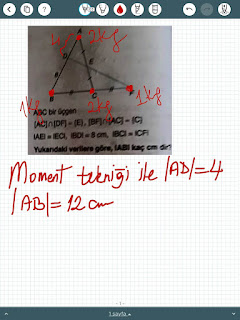 A
4
2kg
D
E
8
1kg
2kg
1kg
B
C
F
ABC bir üçgen
[AC]∩[DF] = {E}, [BF]∩[AC] = {C}
IAEI = IECI, IBDI = 8 cm, IBCI = ICFI
Yukarıdaki verilere göre, IABI kaç cm dir?
Moment tekniği ile |AD|=4
|AB|=12cm
- 1 -
1.sayfa